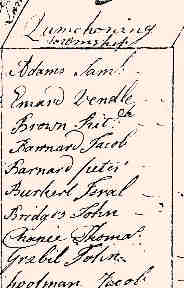 Quemehoning
Township
Adams Saml.
Emard Vendle
Brown
Barnard Jacob
Barnard peter
Burkert Jeral
Bridges John
Chopie Thomas
Grabil John
hoolman Jacob